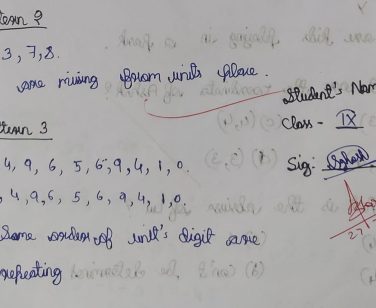 tern 2
3, 7, 8.
are missing from units place.
Student's Nam
Class - IX
tern 3
4, 9, 6, 5, 6, 9, 4, 1, 0.
Sig:
4, 9, 6, 5, 6, 9, 4, 1, 0.
Same order of unit's digit are
repeating